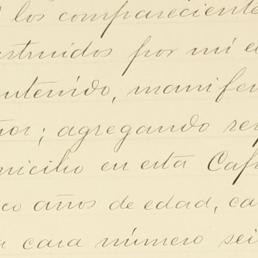 los compareciente
struidos por mí el
ontenido, manifes
ños; agregando ser
micilio en esta Cap
co años de edad, ca
a casa número sei